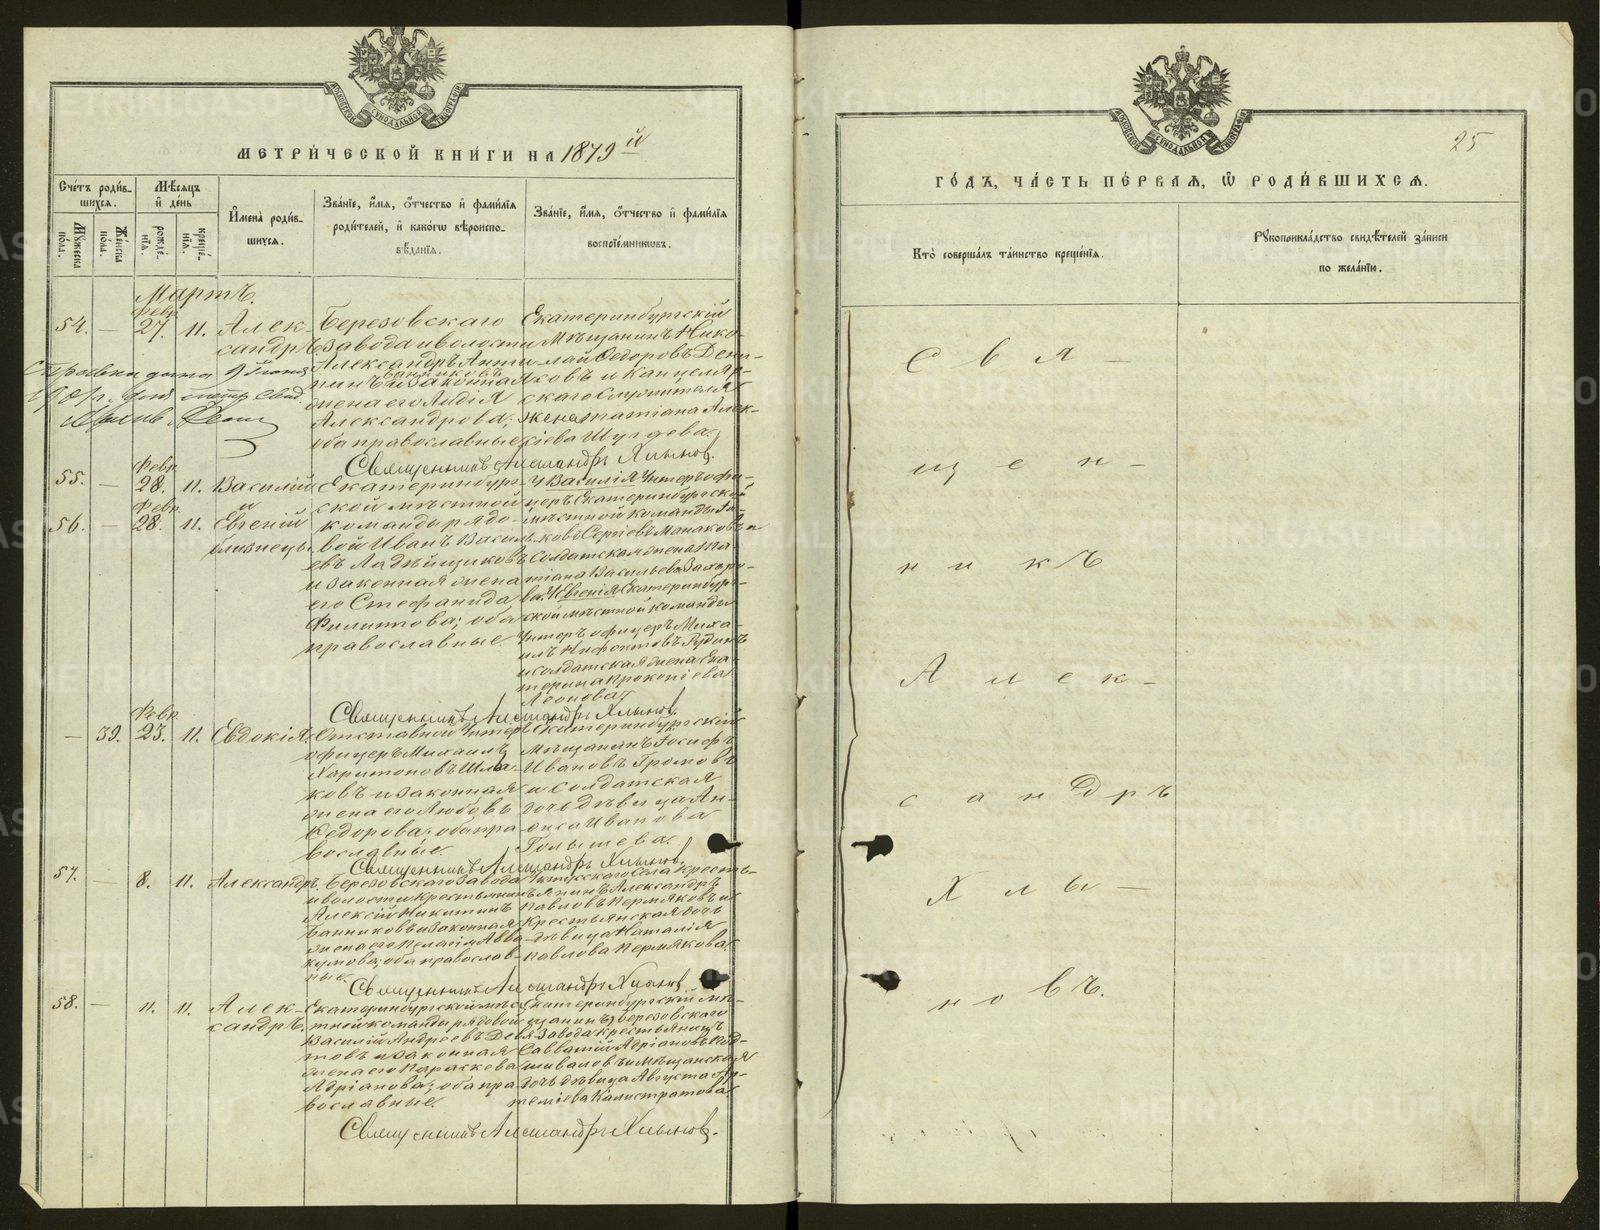 МЕТРИ́ЧЕСКОЙ КНИ́ГИ НА 1879й
Счетъ роди́в-
шихся.
Мѣсяцъ
и҆ день
Мꙋжеска
по́ла.
Же́нска
по́ла.
рожде́-
нїя.
креще́-
нїя.
И҆мена̀ роди́в-
шихся.
Зва́нїе, и҆́мя, ѻ҆́тчество и҆ фами́лїя
роди́телей, и҆ како́гѡ вѣроиспо-
вѣ́данїя.
Зва́нїе, и҆́мя, ѻ҆́тчество и҆ фами́лїя
воспрїе́мникѡвъ.
Мартъ.
54.
—
Февр.
27.
11.
Алек-
сандръ
Березовскаго
завода и волости
Александръ Анти-
пинъ
Банниковъ
и законная
жена его Лидія
Александрова; оба православные
Екатеринбургскій
Мѣщанинъ Нико-
лай Ѳедоровъ Дени-
ковъ и Канцеляр-
скаго Служителя
жена Татіана Алек-
сіева Шугаева.
Справка дана
Священникъ Александръ Хлыновъ.
55.
—
Февр.
28.
11.
Василій
и
56.
—
Февр.
28.
11.
Евгеній
близнецы.
Екатеринбург-
ской мѣстной
команды рядо-
вой Иванъ Василь-
евъ Ладейщиковъ
и законная жена
его Стефанида
Филиппова; оба
православные.
У Василія Унтеръ офи-
церъ Екатеринбургской
мѣстной команды Яс-
ковъ Сергіевъ Манаковъ и
Солдатская жена Та-
тіана Васильева Захаро-
ва. У Евгенія Екатеринбург-
ской мѣстной команды
Унтеръ офицеръ Миха-
илъ Нифонтовъ Рудинъ
и солдатская жена Ека-
терина Прокопіева
Леонова.
Священникъ Александръ Хлыновъ.
—
39.
Февр.
23.
11.
Евдокія.
Отставной Унтеръ
офицеръ Михаилъ
Харитоновъ Шла-
ковъ и законная
жена его Любовь
Ѳедорова; оба пра-
вославные.
Екатеринбургскій
Мѣщанинъ Іосифъ
Ивановъ Громовъ
и Солдатская
дочь дѣвица Ан-
фиса Иванова
Голышева.
Священникъ Александръ Хлыновъ.
57.
—
8.
11.
Александръ.
Березовскаго завода
и волости крестьянинъ
Алексій Никитинъ
Банниковъ и законная
жена его Пелагія Авва-
кумова; оба православ-
ные.
Уктусскаго Села Кресть-
янинъ Александръ
Павловъ Пермяковъ и
Крестьянская дочь
дѣвица Наталія
Павлова Пермякова.
Священникъ Александръ Хлыновъ
58.
—
11.
11.
Алек-
сандръ.
Екатеринбургской мѣс-
тной команды рядовой
Василій Андреевъ Деся-
товъ и законная
жена его Параскева
Адріанова; оба пра-
вославные.
Екатеринбургскій Мѣ-
щанинъ Березовскаго
Завода крестьянинъ
Савватій Адріановъ Под-
шиваловъ и Мѣщанская
дочь дѣвица Августа Ар-
теміева Калистратова.
Священникъ Александръ Хлыновъ.
25
ГО́ДЪ, ЧА́СТЬ ПЕ́РВАЯ, Ѡ҆ РОДИ́ВШИХСЯ.
Кто̀ соверша́лъ та́инство креще́нїя.
Рꙋкоприкла́дство свидѣ́телей за́писи
по жела́нїю.
Свя-
щен-
никъ
Алек-
сандръ
Хлы-
новъ.